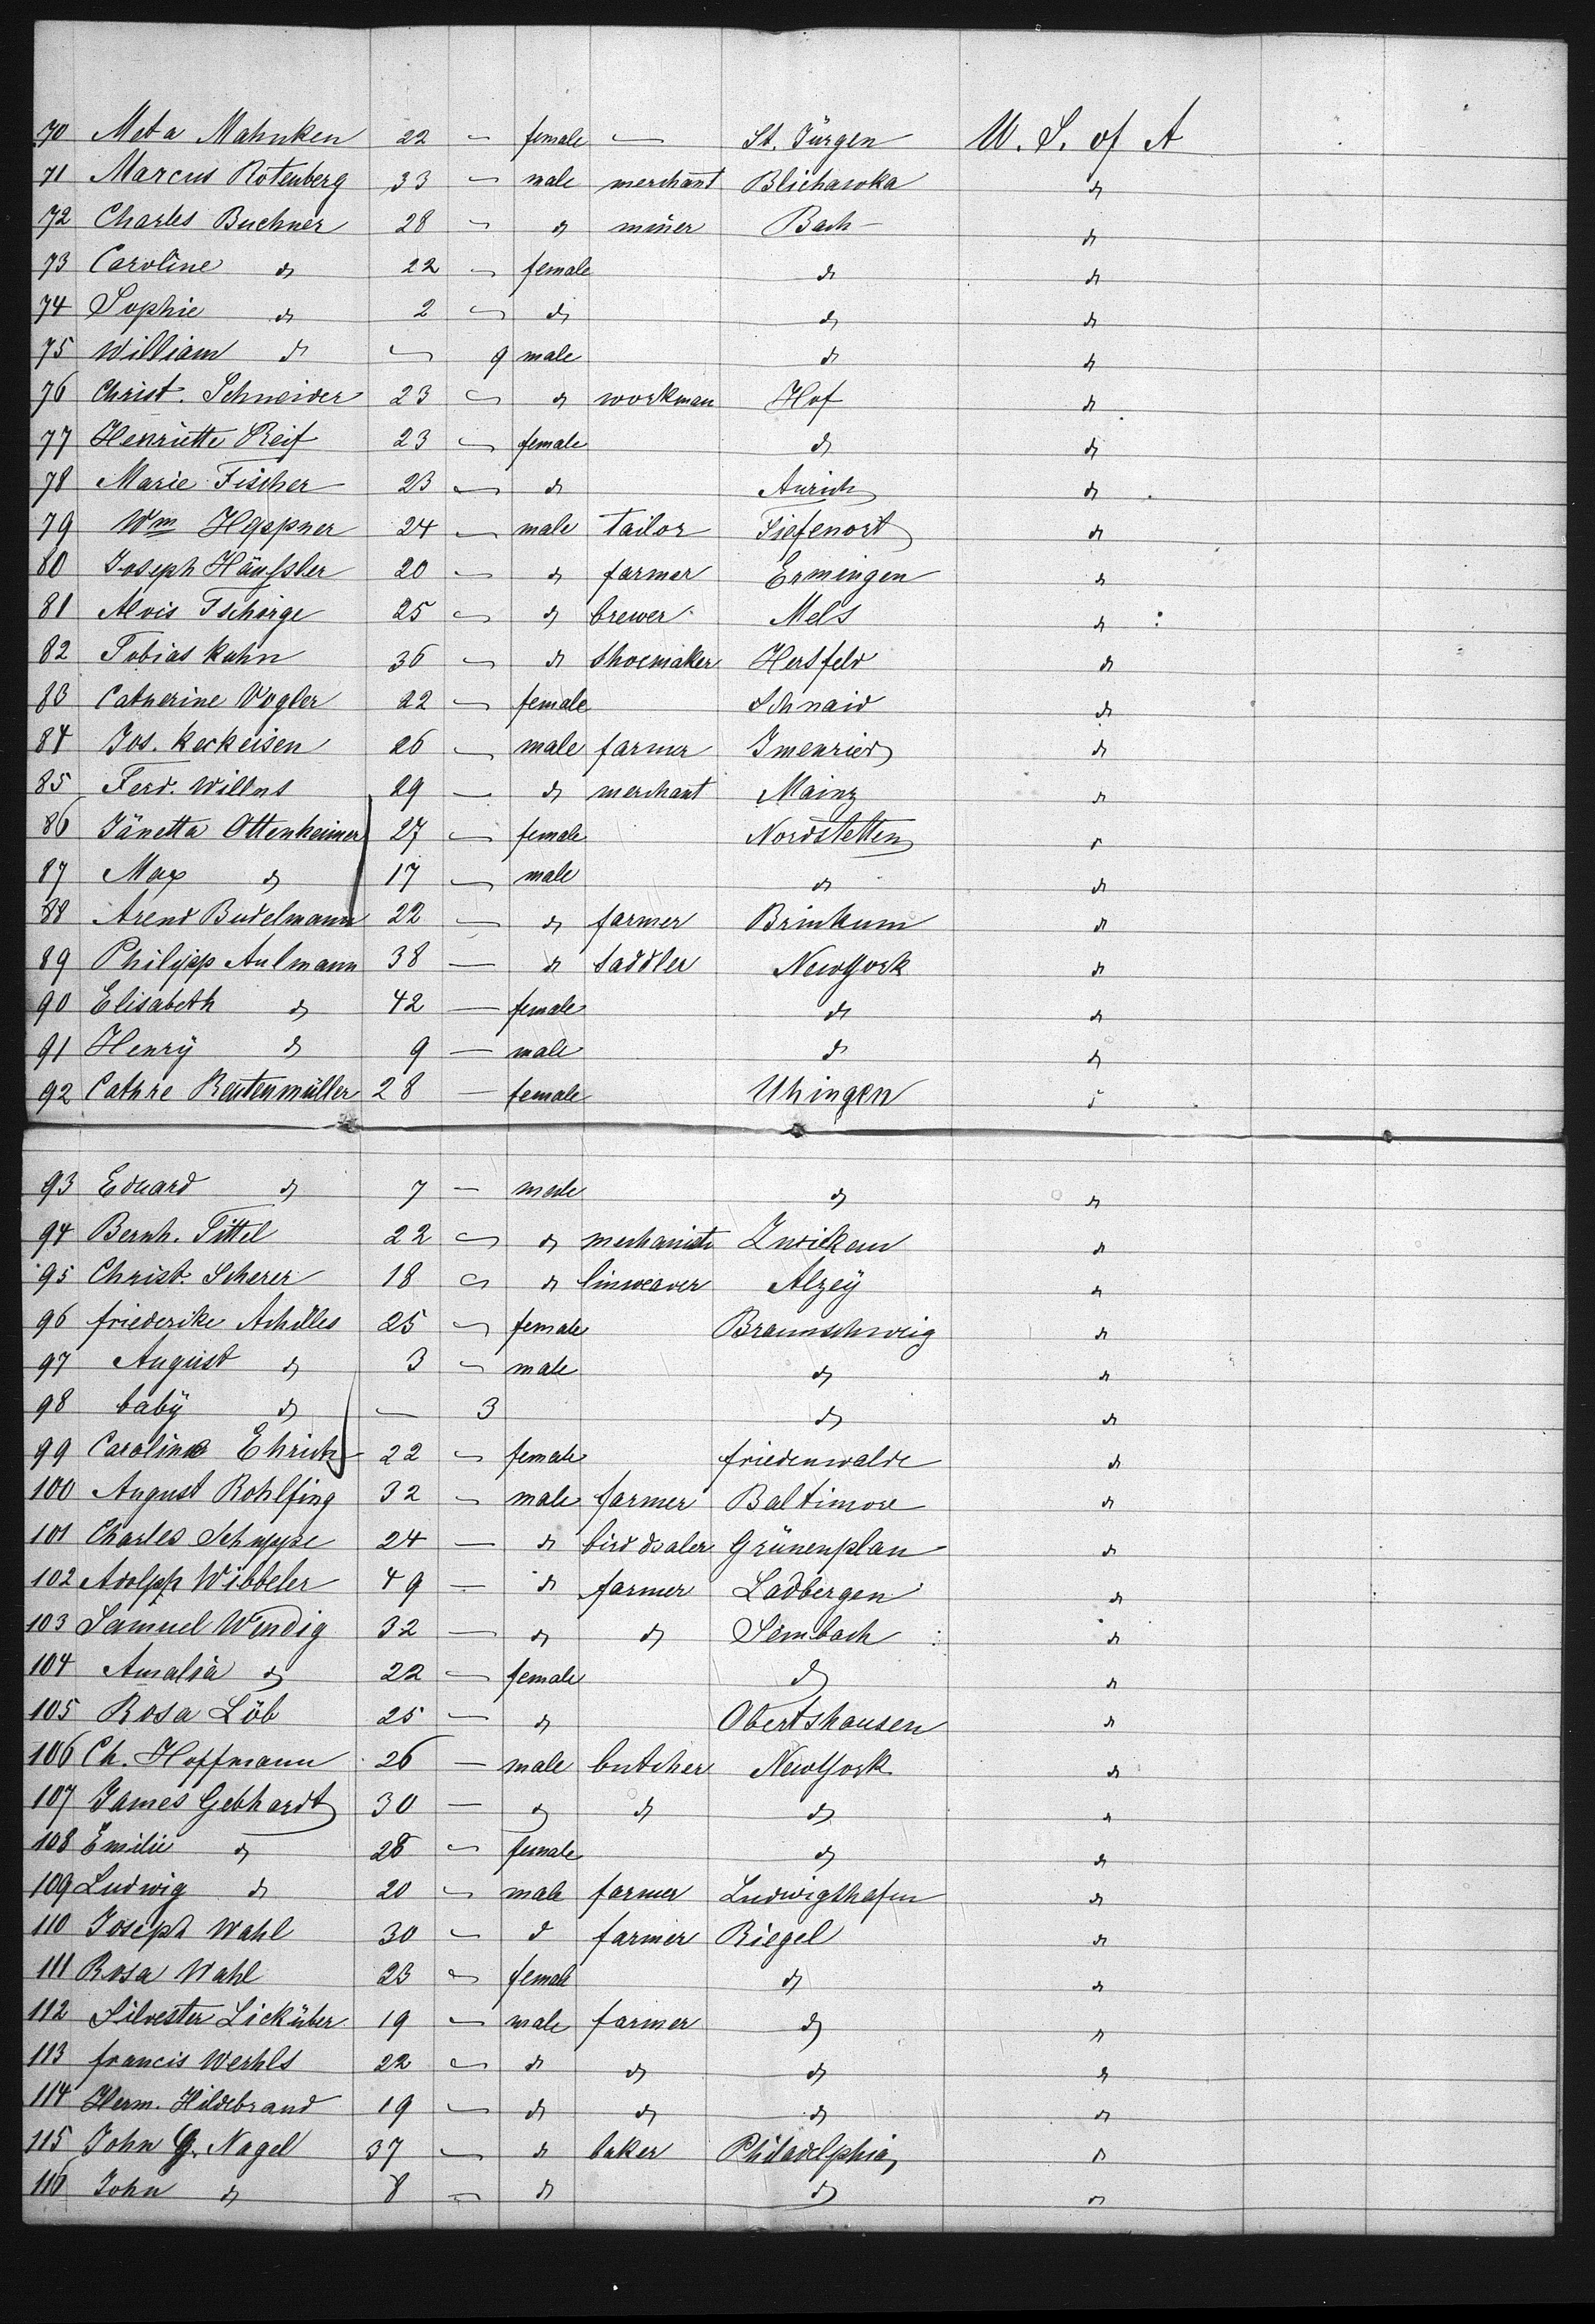 70 Meta Mahnken 22 — female — St. Jürgen U. S. of A
71 Marcus Rotenberg 33 — male merchant Blichawka do
72 Charles Buchner 28 — do miner Bach do
73 Caroline do 22 — female do do
74 Sophie do 2 — do do do
75 William do — 9 male do do
76 Christ. Schneider 23 — do workman Hof do
77 Henriette Reif 23 — female do do
78 Marie Fischer 23 — do Aurich do
79 Wm Heppner 24 — male tailor Tiefenort do
80 Joseph Häußler 20 — do farmer Ermingen do
81 Alois Tschirge 25 — do brewer Mels do
82 Tobias Kuhn 36 — do shoemaker Hersfeld do
83 Catherine Vogler 22 — female Schnaid do
84 Jos. Keckeisen 26 — male farmer Imenried do
85 Ferd. Willms 29 — do merchant Mainz do
86 Jänetta Ottenheimer 27 — female Nordstetten do
87 Max do 17 — male do do
88 Arend Budelmann 22 — do farmer Brinkum do
89 Philipp Aulmann 38 — do saddler NewYork do
90 Elisabeth do 42 — female do do
91 Henry do 9 — male do do
92 Cathre Beutenmüller 28 — female Uhingen do
93 Eduard do 7 — male do do
94 Bernh. Tittel 22 — do Zwickau do
95 Christ. Scherer 18 — do linweaver Alzey do
96 friederike Achilles 25 — female Braunschweig do
97 August do 3 — male do do
98 baby do — 3 do do
99 Caroline Ehrich 22 — female friedenwalde do
100 August Rohlfing 32 — male farmer Baltimore do
101 Charles Schuppe 24 — do bird dealer Grünenplan do
102 Adolph Wibbeler 49 — do farmer Ladbergen do
103 Samuel Wendig 32 — do do Sembach do
104 Amalia do 22 — female do do
105 Rosa Löb 25 — do Obertshausen do
106 Ch. Hoffmann 26 — male butcher NewYork do
107 James Gebhardt 30 — do do do do
108 Emilie do 28 — female do do
109 Ludwig do 20 — male farmer Ludwigshafen do
110 Joseph Wahl 30 — do farmer Riegel do
111 Rosa Wahl 23 — female do do
112 Silvester Licküber 19 — male farmer do do
113 francis Werhls 22 — do do do do
114 Herm. Hildebrand 19 — do do do do
115 John G. Nagel 37 — do baker Philadelphia do
116 John do 8 — do do do